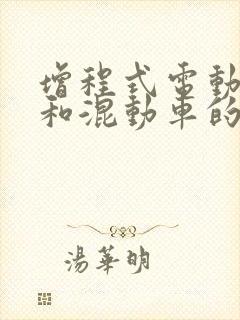 增程式電動
和混動車的
湯華明